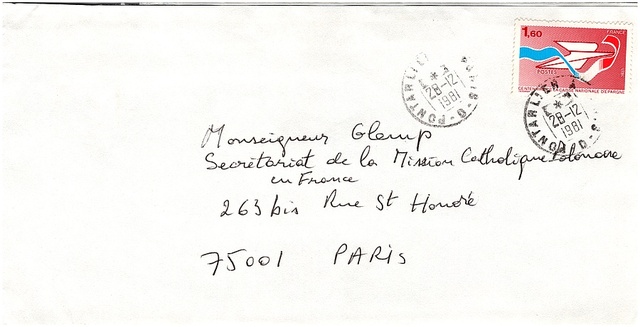 1,60
FRANCE
POSTES
CAISSE NATIONALE D'EPARGNE
PONTARLIER
28-12
1981
PONTARLIER
28-12
1981
Monseigneur Glemp
Secrétariat de la Mission Catholique Polonaise
en France
263 bis Rue St Honoré
75001 PARIS